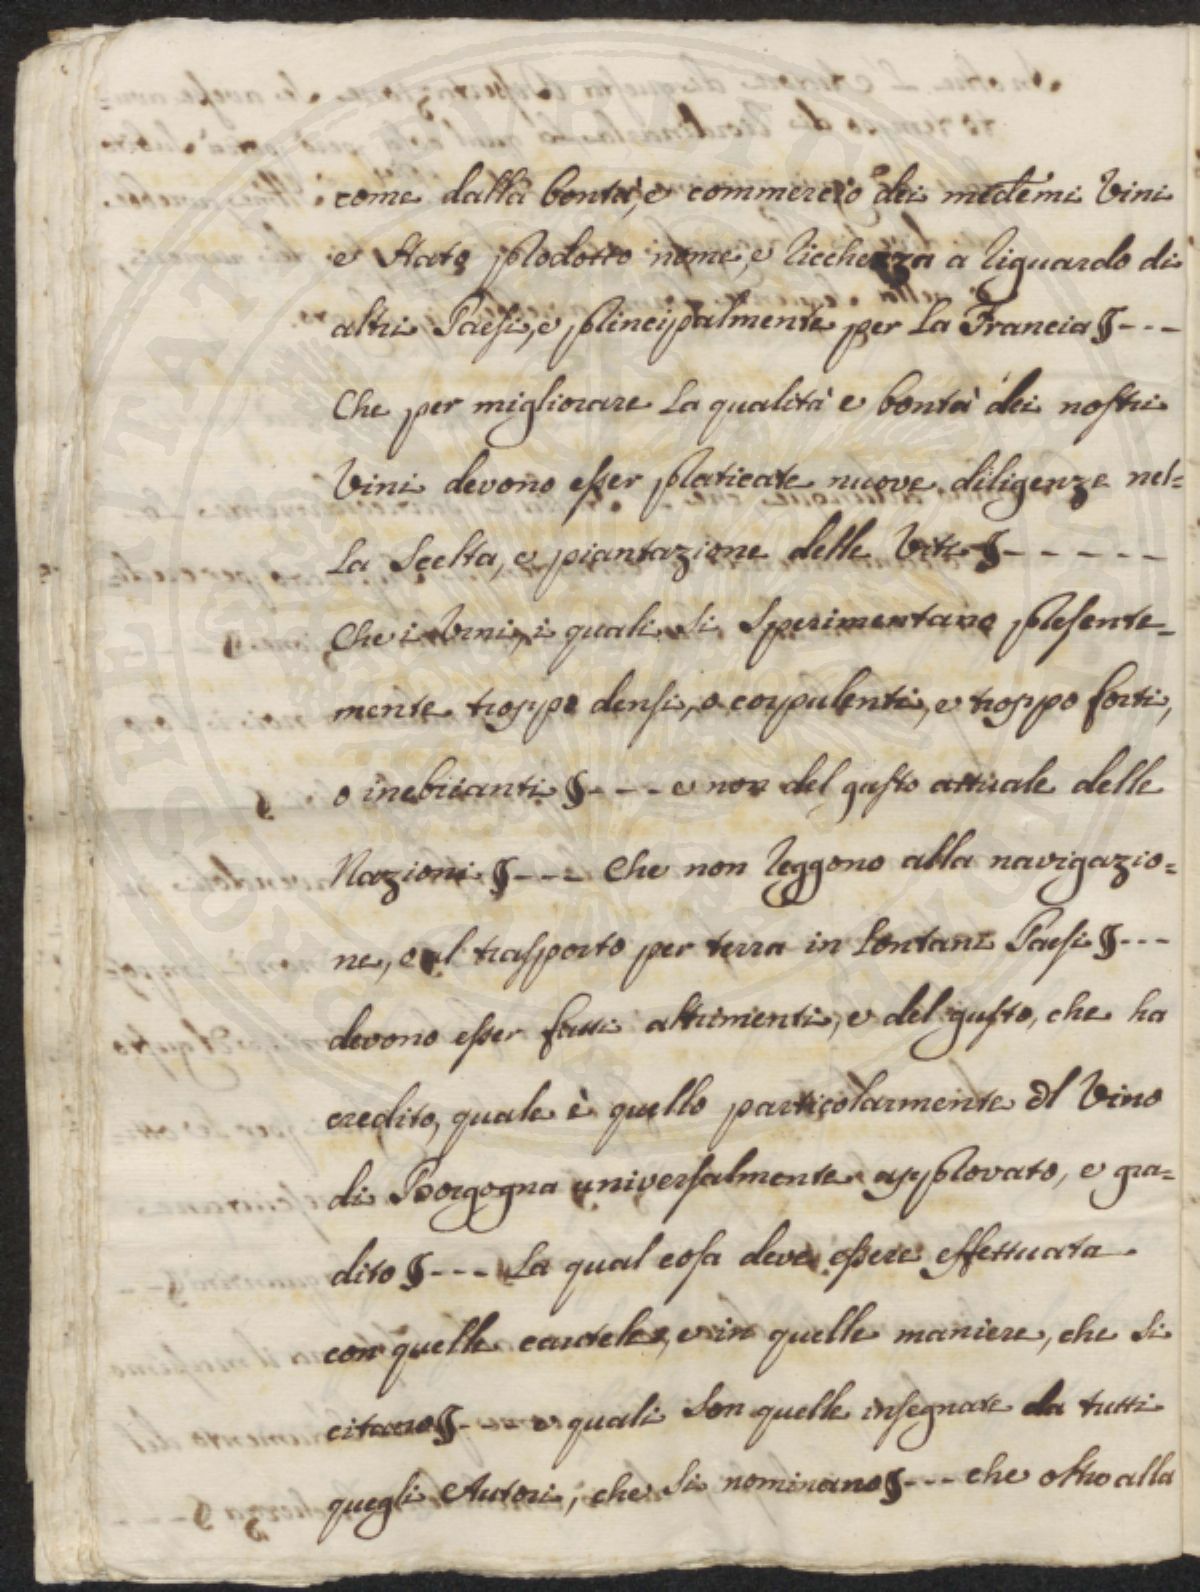 come dalla bontà, e commercio dei medemi Vini
e stato prodotto nome, e ricchezza a riguardo di
altri Paesi, e principalmente per la Francia §---
Che per migliorare la qualità e bontà dei nostri
Vini devono esser praticate nuove diligenze nel=
la scelta, e piantazione delle Viti § - - - - -
Che i Vini, i quali si sperimentano presente-
mente troppo densi, o corpulenti, e troppo forti,
o inebrianti §--- e non del gusto attuale delle
Nazioni §--- Che non reggono alla navigazio=
ne, o al trasporto per terra in lontani Paesi §---
devono esser fatti altrimenti, e del gusto, che ha
credito, quale è quello particolarmente dl Vino
di Borgogna universalmente approvato, e gra=
dito §--- La qual cosa deve essere effettuata
con quelle cautele, e in quelle maniere, che si
citano §-- e quali son quelle insegnate da tutti
quegli Autori, che si nominano §--- che oltre alla